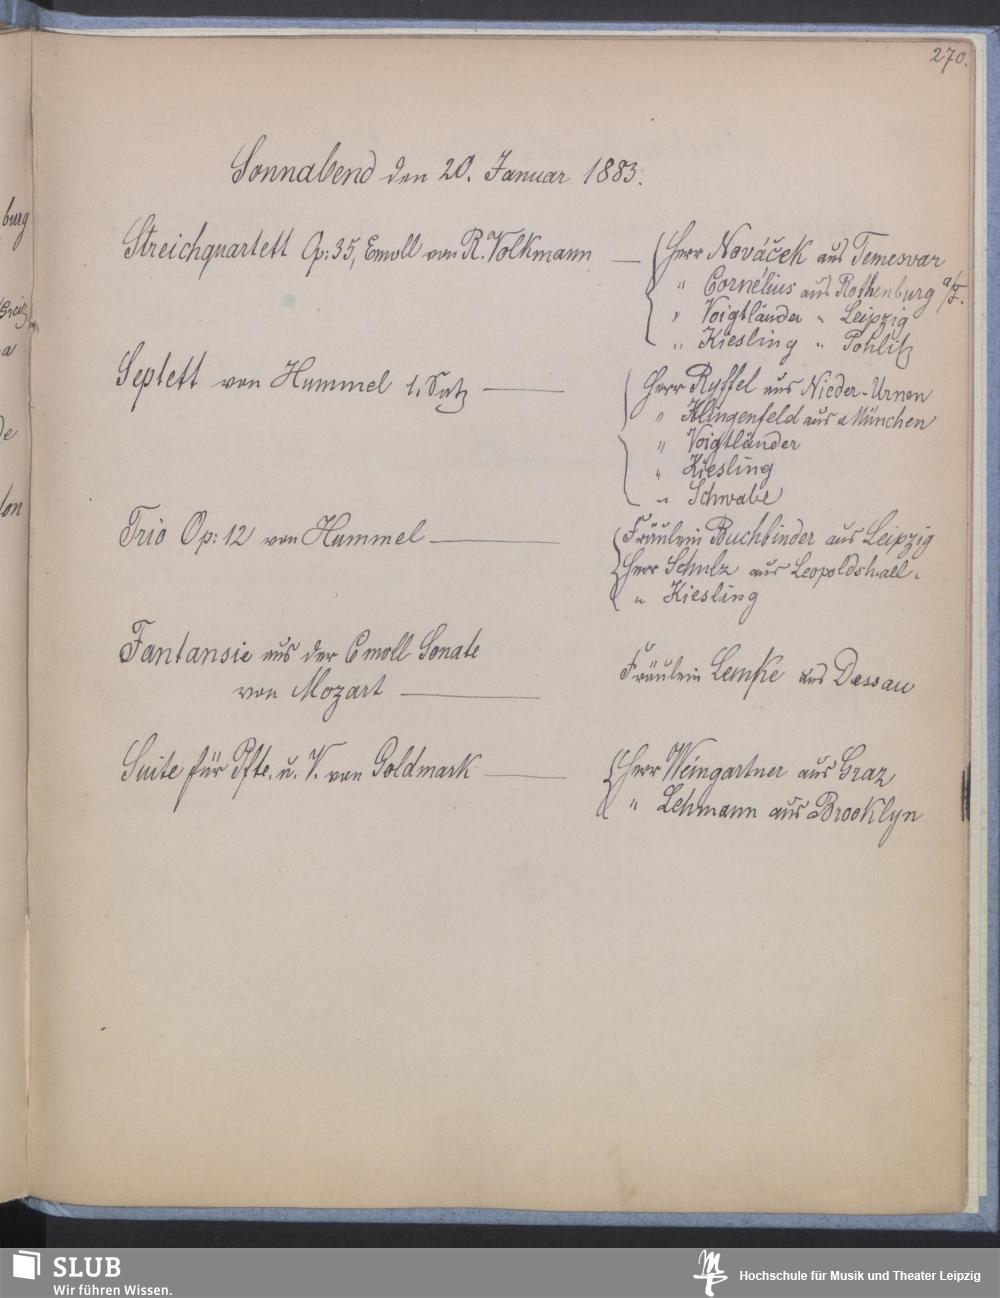 270.
Sonnabend den 20. Januar 1883.
Streichquartett Op: 35, Emoll von R. Volkmann — Herr Nováček aus Temesvar
" Cornélius aus Rothenburg a/T.
" Voigtländer " Leipzig
" Kiesling " Pohlitz
Septett von Hummel 1. Satz — Herr Ryffel aus Nieder-Urnen
" Klingenfeld aus München
" Voigtländer
" Kiesling
" Schwabe
Trio Op: 12 von Hummel — Fräulein Buchbinder aus Leipzig
Herr Schulz aus Leopoldshall.
" Kiesling
Fantansie aus der Cmoll Sonate
von Mozart — Fräulein Lemke aus Dessau
Suite für Pfte. u. V. von Goldmark — Herr Weingartner aus Graz
" Lehmann aus Brooklyn
burg
Greiz
a
de
lon
SLUB
Wir führen Wissen.
Hochschule für Musik und Theater Leipzig